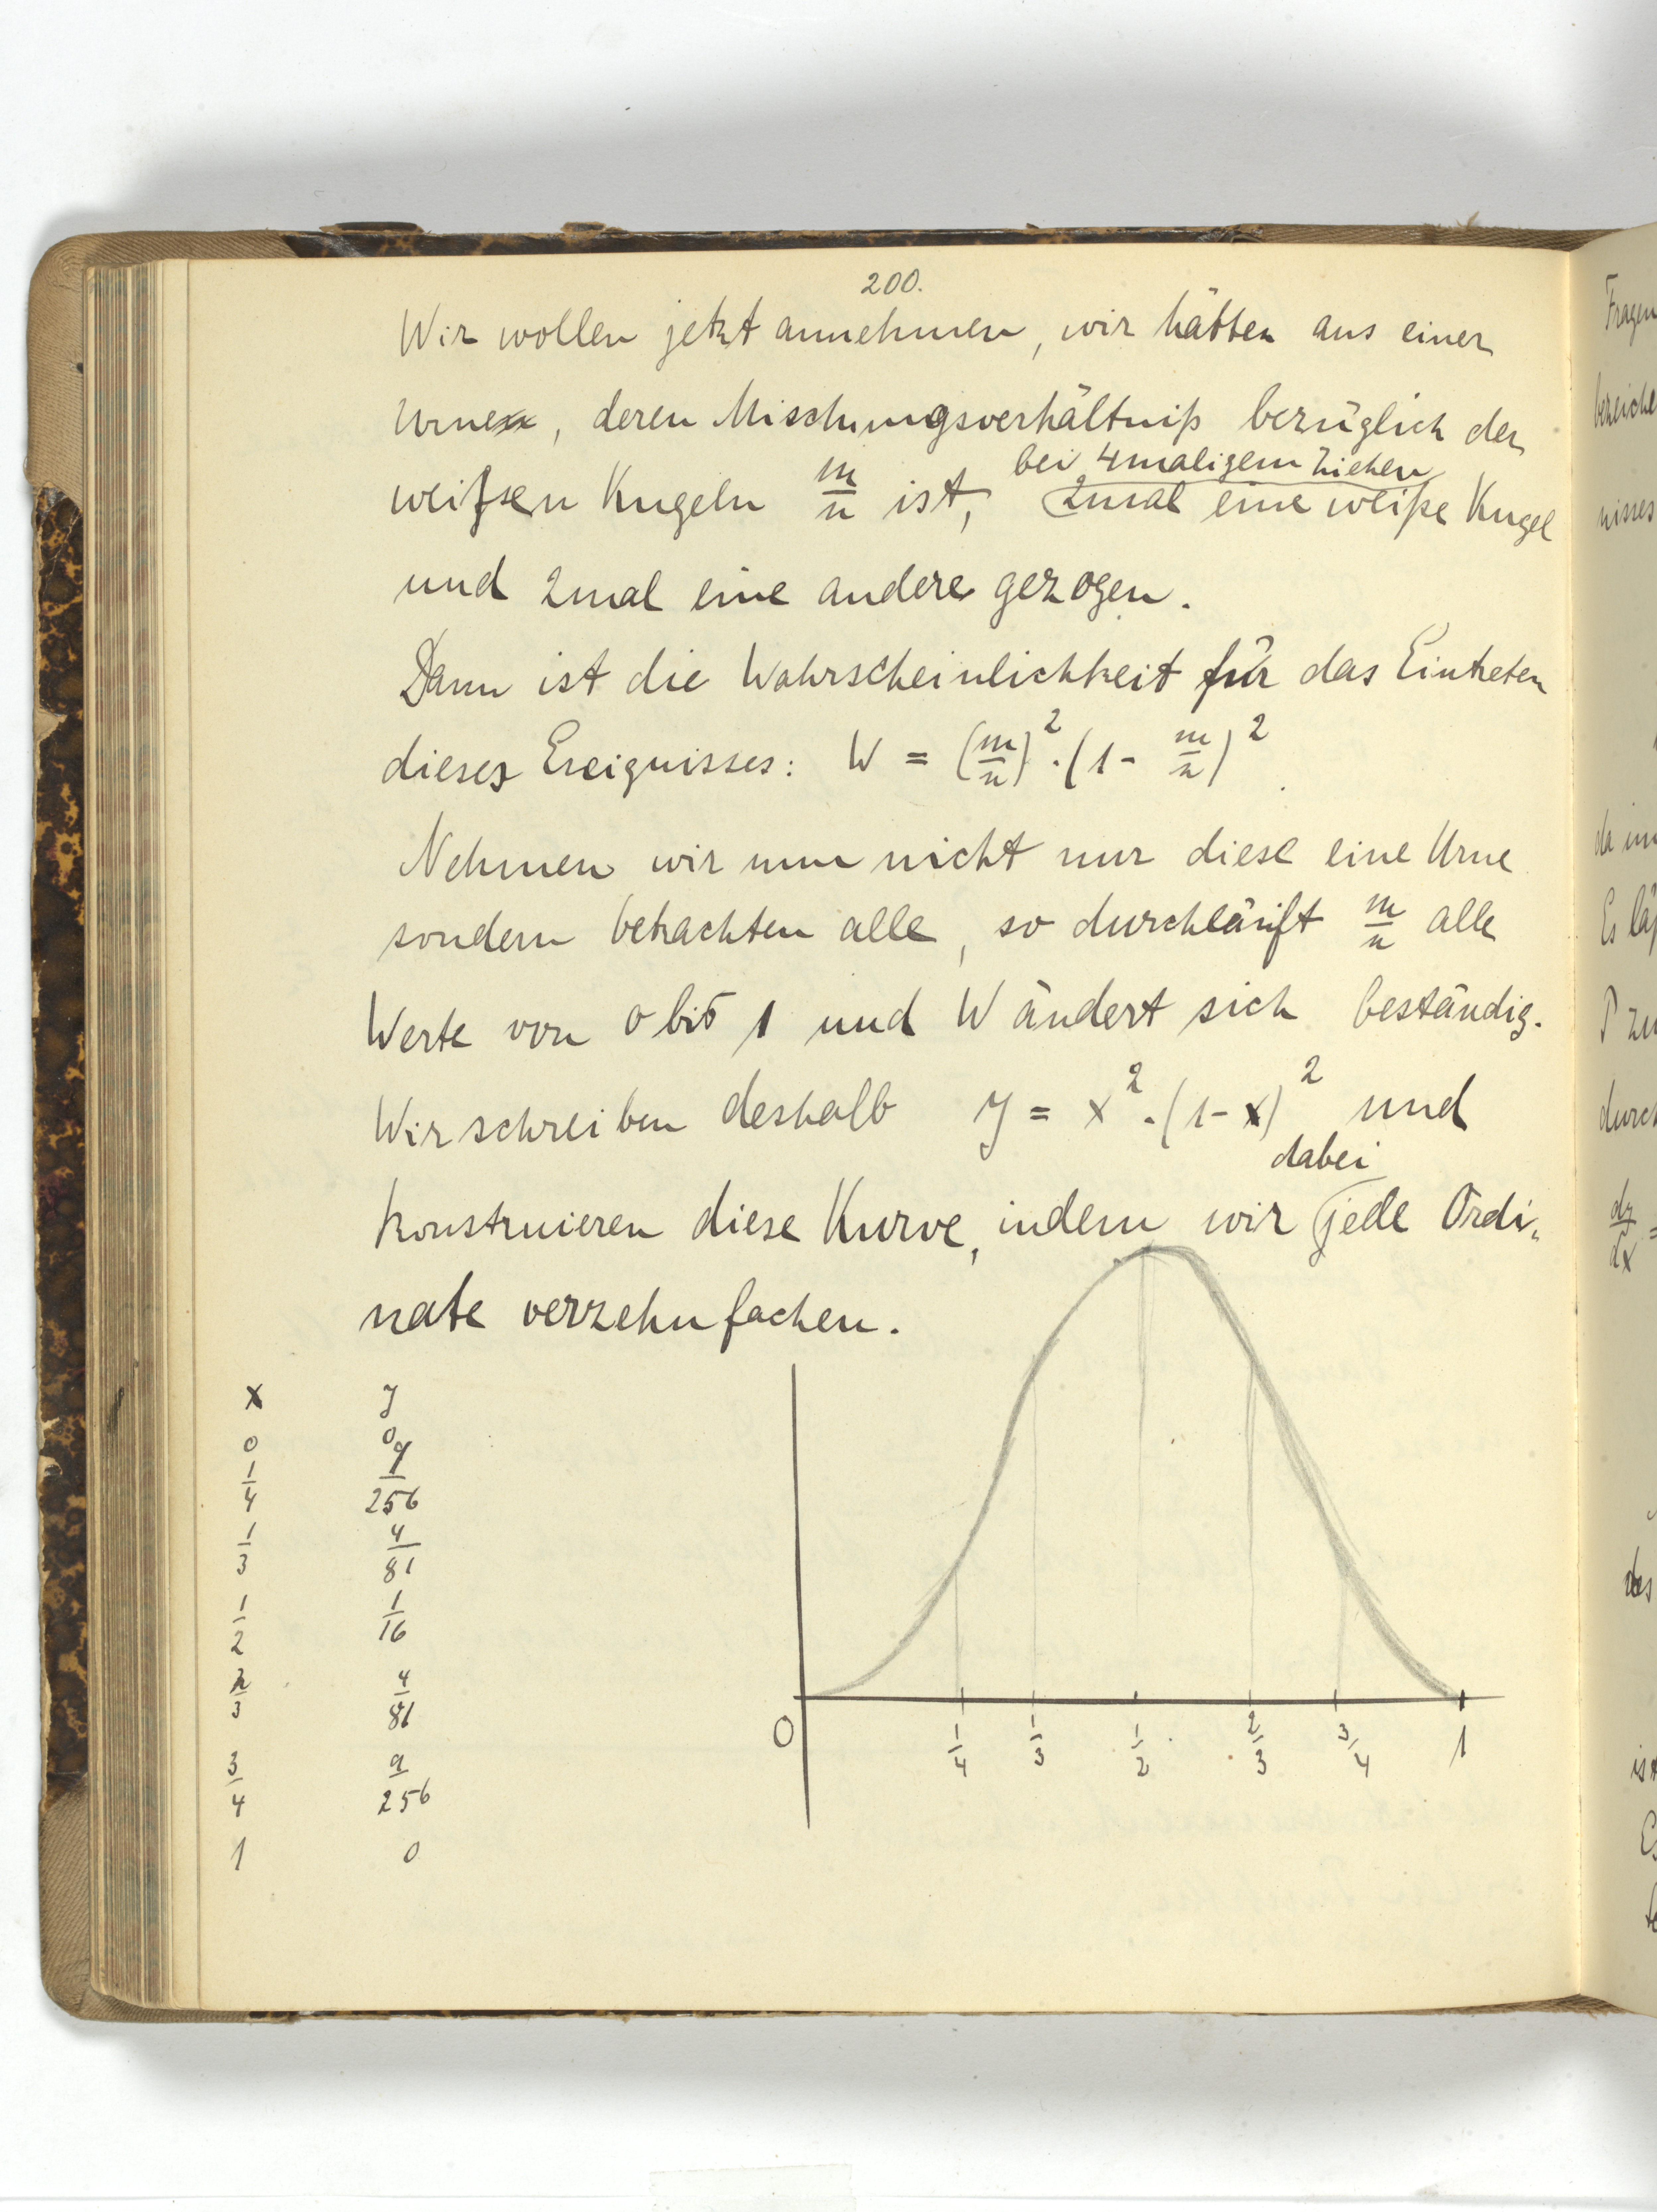 200.
Wir wollen jetzt annehmen, wir hätten aus einer
Urne, deren Mischungsverhältniß bezüglich der
bei 4maligem Ziehen
weißen Kugeln m/n ist, 2mal eine weiße Kugel
und 2mal eine andere gezogen.
Dann ist die Wahrscheinlichkeit für das Eintreten
dieses Ereignisses: W = (m/n)² · (1 - m/n)².
Nehmen wir nun nicht nur diese eine Urne
sondern betrachten alle, so durchläuft m/n alle
Werte von 0 bis 1 und W ändert sich beständig.
Wir schreiben deshalb y = x² · (1 - x)² und
dabei
konstruieren diese Kurve, indem wir jede Ordi-
nate verzehnfachen.
x y
0 0
1/4 9/256
1/3 4/81
1/2 1/16
2/3 4/81
3/4 9/256
1 0
0 1/4 1/3 1/2 2/3 3/4 1
Fragen
nisses
Es
P zu
durch
dy/dx =
des